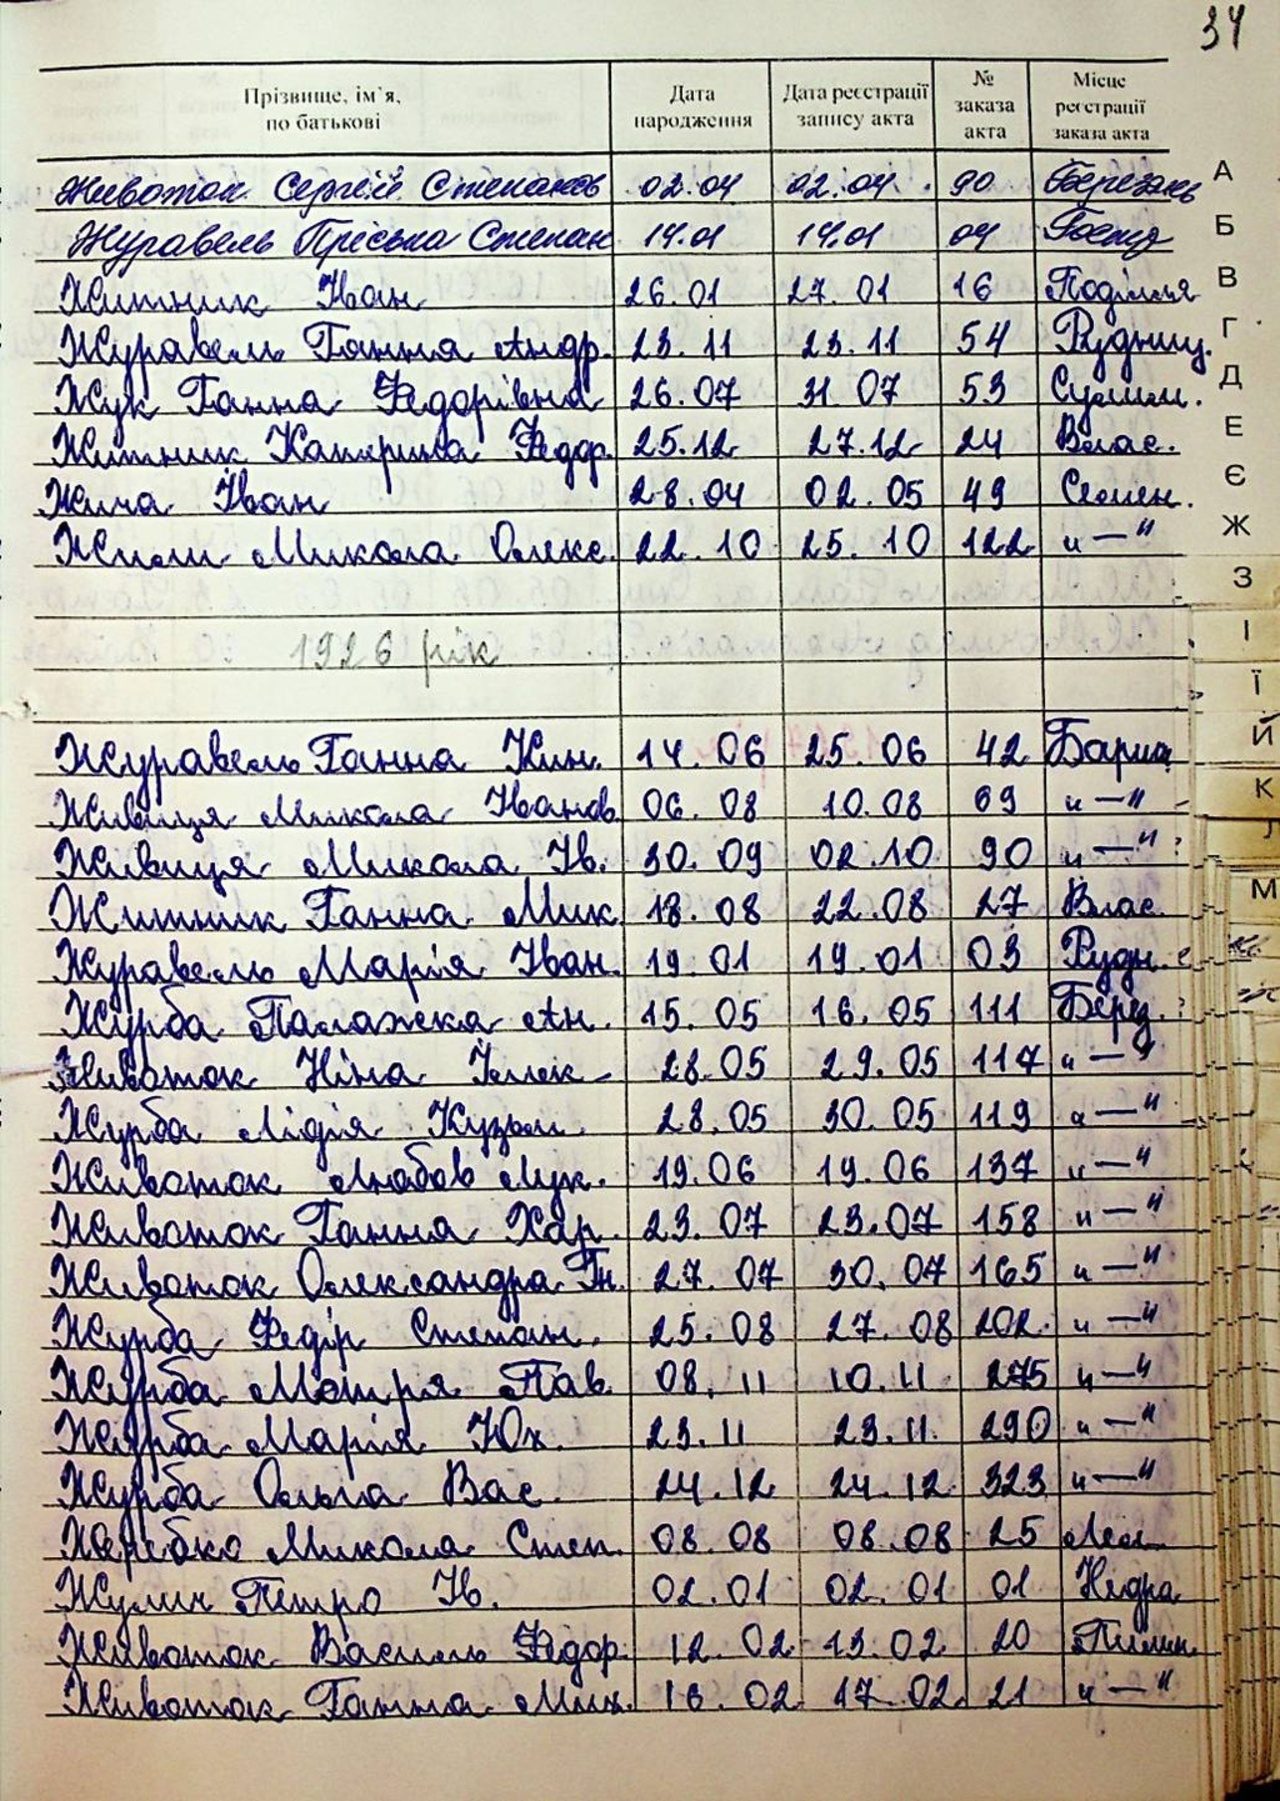 34
Прізвище, ім'я, по батькові Дата народження Дата реєстрації запису акта № заказа акта Місце реєстрації заказа акта
Животок Сергій Степанов 02.04 02.04. 90 Березань
Журавель Пріська Степан 14.01 14.01 04
Житник Іван 26.01 27.01 16 Поділля
Журавель Ганна Андр. 23.11 23.11 54 Рудниц.
Жук Ганна Федорівна 26.07 31.07 53 Сулим.
Житник Катерина Федор. 25.12 27.12 24 Влас.
Іван 28.04 02.05 49 Семен.
Микола Олекс. 22.10 25.10 122 "—"
1926 рік
Журавель Ганна Кин. 14.06 25.06 42
Живиця Микола Іванов. 06.08 10.08 69 "—"
Живиця Микола Ів. 30.09 02.10 90 "—"
Житник Ганна Мик. 18.08 22.08 27 Влас.
Журавель Марія Іван. 19.01 19.01 03 Рудн.
Журба Палажка Ан. 15.05 16.05 111 Берез.
Животок Ніна 28.05 29.05 117 "—"
Журба Лідія Кузьм. 28.05 30.05 119 "—"
Животок Любов Лук. 19.06 19.06 137 "—"
Животок Ганна Хар. 23.07 23.07 158 "—"
Животок Олександра Гн. 27.07 30.07 165 "—"
Журба Федір Степан. 25.08 27.08 202 "—"
Журба Мотря Пав. 08.11 10.11 275 "—"
Журба Марія Юх. 23.11 23.11. 290 "—"
Журба Ольга Вас. 24.12 24.12 323 "—"
Микола Степ. 08.08 08.08 25
Жулич Петро Ів. 02.01 02.01 01 Недра
Животок Василь Федор. 12.02 13.02 20
Животок Ганна Мих. 16.02 17.02 21 "—"
А
Б
В
Г
Д
Е
Є
Ж
З
І
Ї
Й
К
Л
М